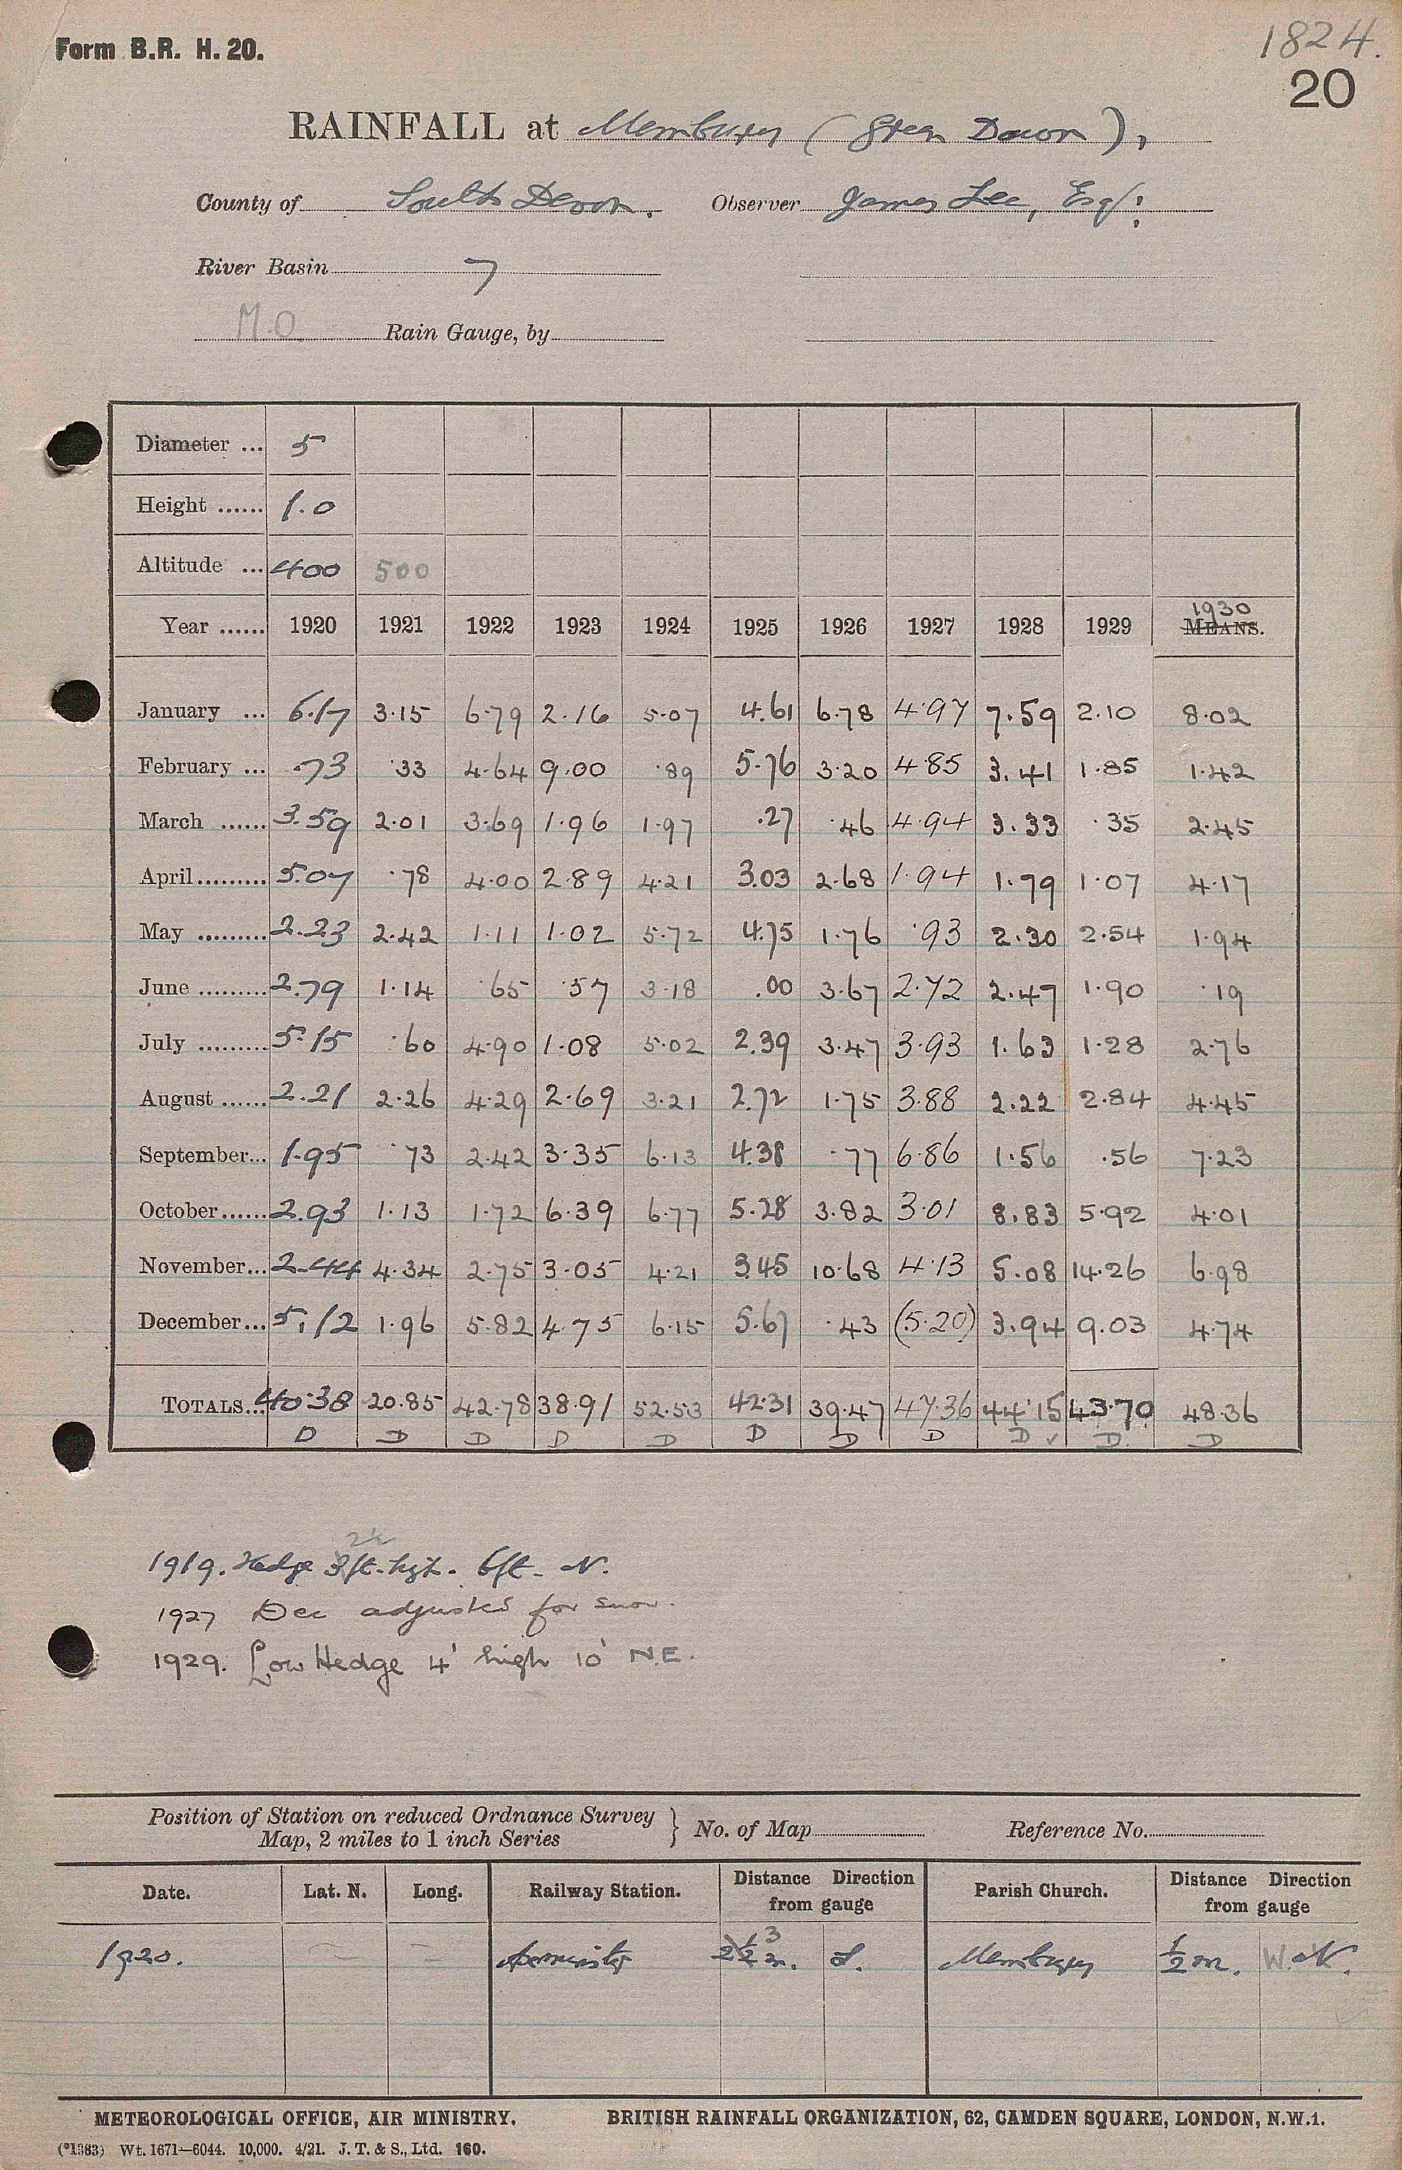 Form B.R. H. 20.
1824.
20
RAINFALL at Membury (Green Down),
County of South Devon. Observer James Lee, Esq:
River Basin 7
M.O. Rain Gauge, by
Diameter ... 5
Height ...... 1.0
Altitude ... 400 500
1930
Year ...... 1920 1921 1922 1923 1924 1925 1926 1927 1928 1929 MEANS.
January ... 6.17 3.15 6.79 2.16 5.07 4.61 6.78 4.97 7.59 2.10 8.02
February ... .73 .33 4.64 9.00 .89 5.76 3.20 4.85 3.41 1.85 1.42
March ...... 3.59 2.01 3.69 1.96 1.97 .27 .46 4.94 3.33 .35 2.45
April ......... 5.07 .78 4.00 2.89 4.21 3.03 2.68 1.94 1.79 1.07 4.17
May ......... 2.23 2.42 1.11 1.02 5.72 4.75 1.76 .93 2.30 2.54 1.94
June ......... 2.79 1.14 .65 .57 3.18 .00 3.67 2.72 2.47 1.90 .19
July ......... 5.15 .60 4.90 1.08 5.02 2.39 3.47 3.93 1.63 1.28 2.76
August ...... 2.21 2.26 4.29 2.69 3.21 2.72 1.75 3.88 2.22 2.84 4.45
September... 1.95 .73 2.42 3.35 6.13 4.38 .77 6.86 1.56 .56 7.23
October...... 2.93 1.13 1.72 6.39 6.77 5.28 3.82 3.01 8.83 5.92 4.01
November... 2.44 4.34 2.75 3.05 4.21 3.45 10.68 4.13 5.08 14.26 6.98
December... 5.12 1.96 5.82 4.75 6.15 5.67 .43 (5.20) 3.94 9.03 4.74
TOTALS... 40.38 20.85 42.78 38.91 52.53 42.31 39.47 47.36 44.15 43.70 48.36
D D D D D D D D D ✓ D D
1919. Hedge 3ft. hgt. 6ft. N.
1927 Dec adjusted for snow.
1929. Low Hedge 4' high 10' N.E.
Position of Station on reduced Ordnance Survey
Map, 2 miles to 1 inch Series } No. of Map Reference No.
Date. Lat. N. Long. Railway Station. Distance Direction from gauge Parish Church. Distance Direction from gauge
3
1920. — — Axminster 2½ m. S. Membury ½ m. W. N.
METEOROLOGICAL OFFICE, AIR MINISTRY. BRITISH RAINFALL ORGANIZATION, 62, CAMDEN SQUARE, LONDON, N.W.1.
(*1383) Wt. 1671—6044. 10,000. 4/21. J. T. & S., Ltd. 160.